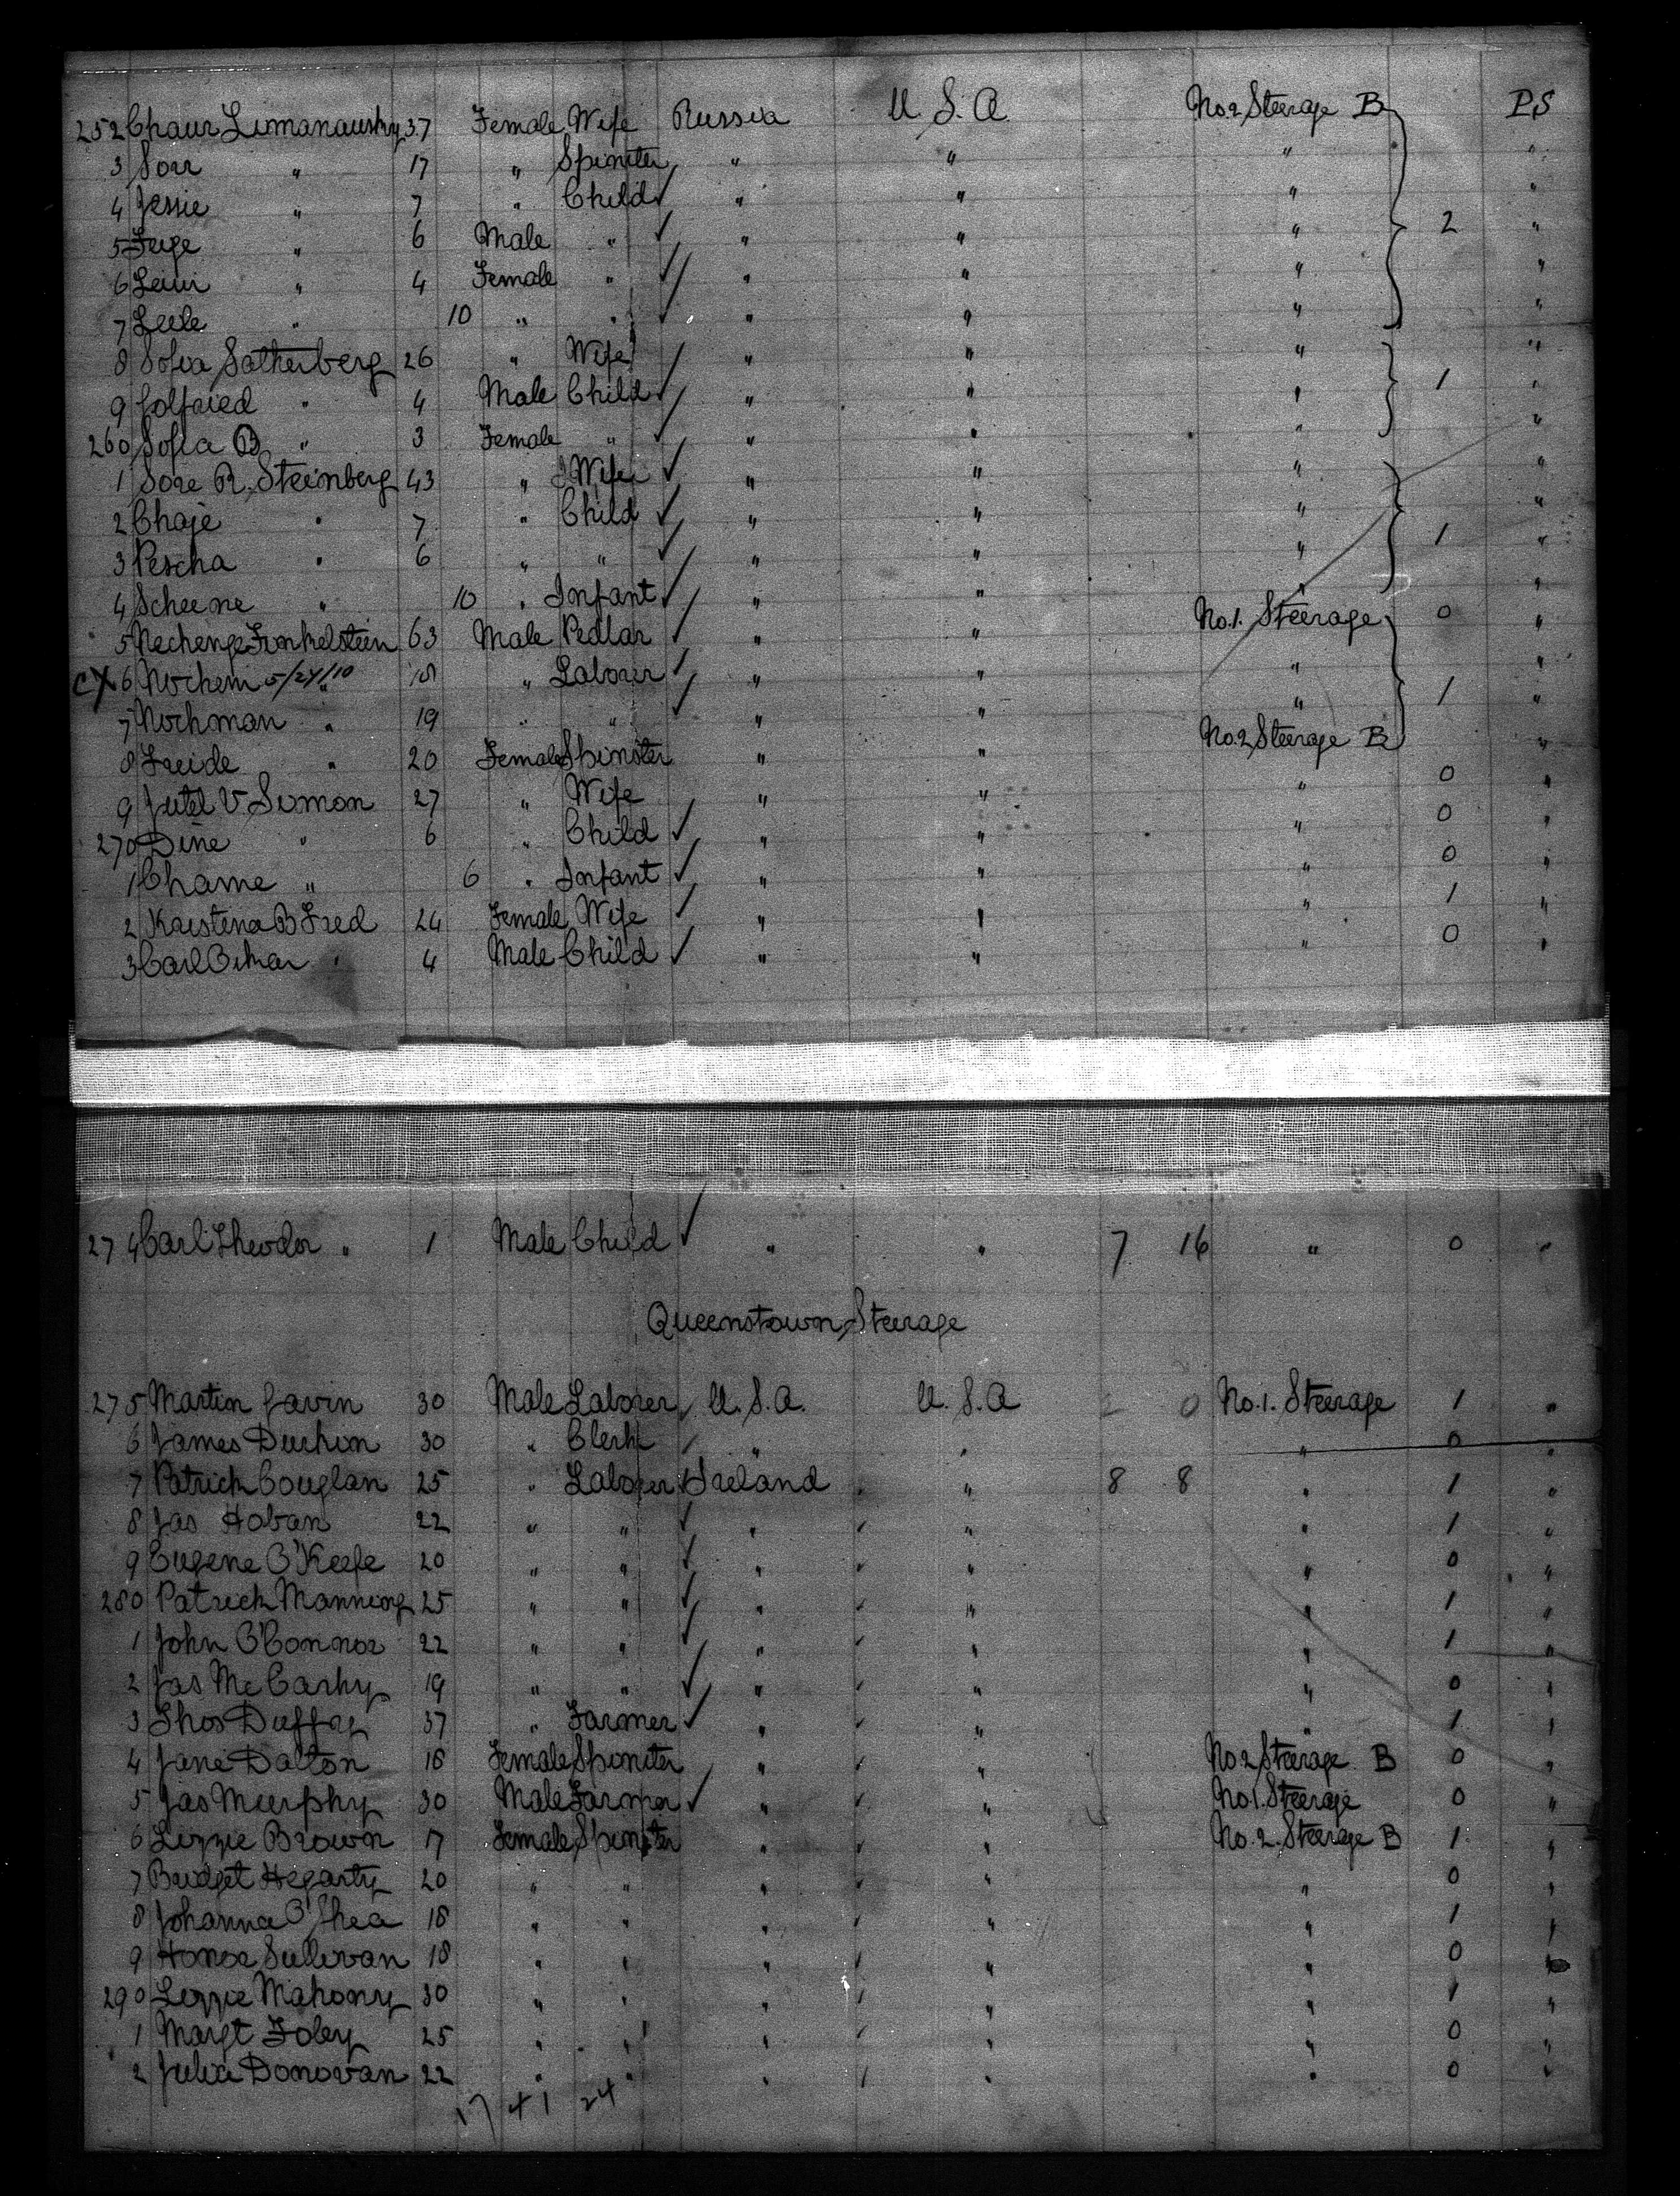 252 Chaur Limanausky 37 Female Wife Russia U.S.A No.2 Steerage B PS
3 Sorr " 17 " Spinster " " " "
4 Jessie " 7 " Child " " " "
5 Feige " 6 Male " " " " 2 "
6 " 4 Female " " " " "
7 Leele " 10 " " " " " "
8 Sofia Satherberg 26 " Wife " " " "
9 Golfried " 4 Male Child " " " 1 "
260 Sofia B " 3 Female " " " " "
1 Sore R. Steinberg 43 " Wife " " " "
2 Chaje " 7 " Child " " " "
3 Pescha " 6 " " " " " 1 "
4 Scheene " 10 " Infant " " " "
5 Nechenge Frankelstein 63 Male Pedlar " " No.1. Steerage 0 "
cx 6 Nochem 5/24/10 " 18 " Laborer " " " "
7 Nochman " 19 " " " " " 1 "
8 Freide " 20 Female Spinster " " No.2 Steerage B "
9 Jutel V Simon 27 " Wife " " " 0 "
270 Dine " 6 " Child " " " 0 "
1 Chame " 6 " Infant " " " 0 "
2 Kristina B Fred 24 Female Wife " " " 1 "
3 Carl " 4 Male Child " " " 0 "
274 Carl Theodor " 1 Male Child " " 7 16 " 0 "
Queenstown Steerage
275 Martin Gavin 30 Male Laborer U.S.A. U.S.A 2 0 No.1. Steerage 1 "
6 James Durkin 30 " Clerk " " " 0 "
7 Patrick Couglan 25 " Laborer Ireland " 8 8 " 1 "
8 Jas Hoban 22 " " " " " 1 "
9 Eugene O'Keefe 20 " " " " " 0 "
280 Patrick Manning 25 " " " " " 1 "
1 John O'Connor 22 " " " " " 1 "
2 Jas McCarhy 19 " " " " " 0 "
3 Thos Duffay 37 " Farmer " " " 1 "
4 Jane Dalton 18 Female Spinster " " No.2 Steerage B 0 "
5 Jas Murphy 30 Male Farmer " " No.1. Steerage 0 "
6 Lizzie Brown 17 Female Spinster " " No.2. Steerage B 1 "
7 Bridget Hegarty 20 " " " " " 0 "
8 Johanna O'Shea 18 " " " " " 1 "
9 Honor Sullivan 18 " " " " " 0 "
290 Lizzie Mahony 30 " " " " " 1 "
1 Margt Foley 25 " " " " " 0 "
2 Julia Donovan 22 " " " " " 0 "
17 41 24